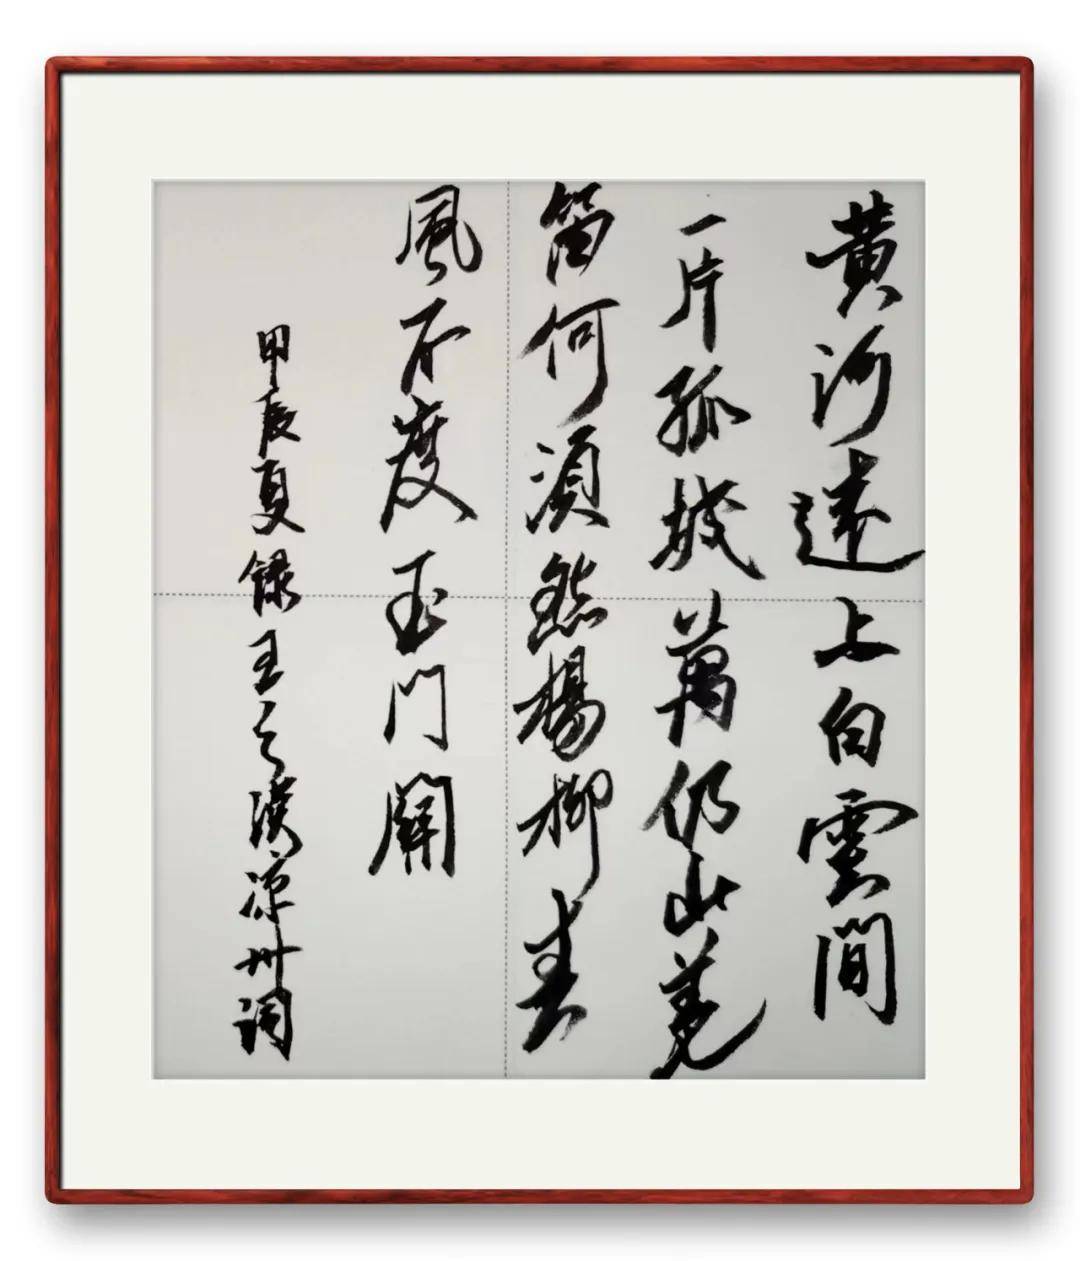 黄河遠上白雲間
一片孤城萬仞山羌
笛何須怨楊柳春
風不度玉門關
甲辰夏録王之渙凉州詞